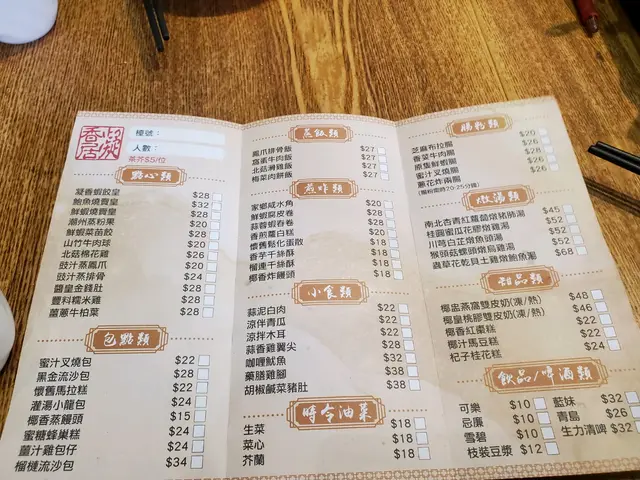 凝香居
檯號：
人數：
茶芥$5/位
點心類
凝香蝦餃皇 $28
鮑魚燒賣皇 $32
鮮蝦燒賣皇 $28
潮州蒸粉果 $20
鮮蝦菜苗餃 $28
山竹牛肉球 $20
北菇棉花雞 $26
豉汁蒸鳳爪 $20
豉汁蒸排骨 $24
醬皇金錢肚 $28
豐料糯米雞 $28
薑蔥牛柏葉 $28
包點類
蜜汁叉燒包 $22
黑金流沙包 $28
懷舊馬拉糕 $22
灌湯小龍包 $24
椰香蒸饅頭 $15
蜜糖蜂巢糕 $24
薑汁雞包仔 $24
榴槤流沙包 $34
蒸飯類
鳳爪排骨飯 $27
窩蛋牛肉飯 $27
北菇滑雞飯 $27
梅菜肉餅飯 $27
煎炸類
家鄉咸水角 $20
鮮蝦腐皮卷 $28
蒜蓉蝦春卷 $28
香煎蘿白糕 $20
懷舊鬆化蛋散 $18
香芋千絲酥 $18
榴連千絲酥 $18
椰香炸饅頭 $18
小食類
蒜泥白肉 $22
涼伴青瓜 $22
涼拌木耳 $22
蒜香雞翼尖 $28
咖喱魷魚 $32
藥膳雞腳 $38
胡椒鹹菜豬肚 $38
時令油菜
生菜 $18
菜心 $18
芥蘭 $18
腸粉類
芝麻布拉腸 $20
香菜牛肉腸 $26
原隻鮮蝦腸 $28
蜜汁叉燒腸 $26
蔥花炸兩腸 $26
(腸粉需時20-25分鐘)
燉湯類
南北杏青紅蘿蔔燉豬腱湯 $45
桂圓響瓜花膠燉雞湯 $52
川芎白芷燉魚頭湯 $52
猴頭菇螺頭燉烏雞湯 $52
蟲草花乾貝土雞燉鮑魚湯 $68
甜品類
椰盅燕窩雙皮奶(凍/熱) $48
椰皇桃膠雙皮奶(凍/熱) $46
椰香紅棗糕 $22
椰汁馬豆糕 $22
杞子桂花糕 $24
飲品/啤酒類
可樂 $10
忌廉 $10
雪碧 $10
枝裝豆漿 $12
藍妹 $32
青島 $26
生力清啤 $32